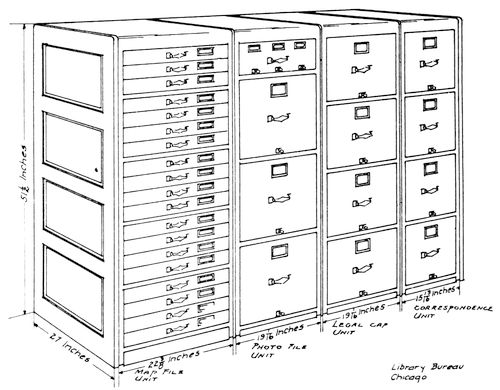 51½ Inches
27 Inches
22⅜ Inches
Map File
Unit
19 1/16 Inches
Photo File
Unit
19 1/16 Inches
Legal Cap
Unit
Inches
Correspondence
Unit
Library Bureau
Chicago